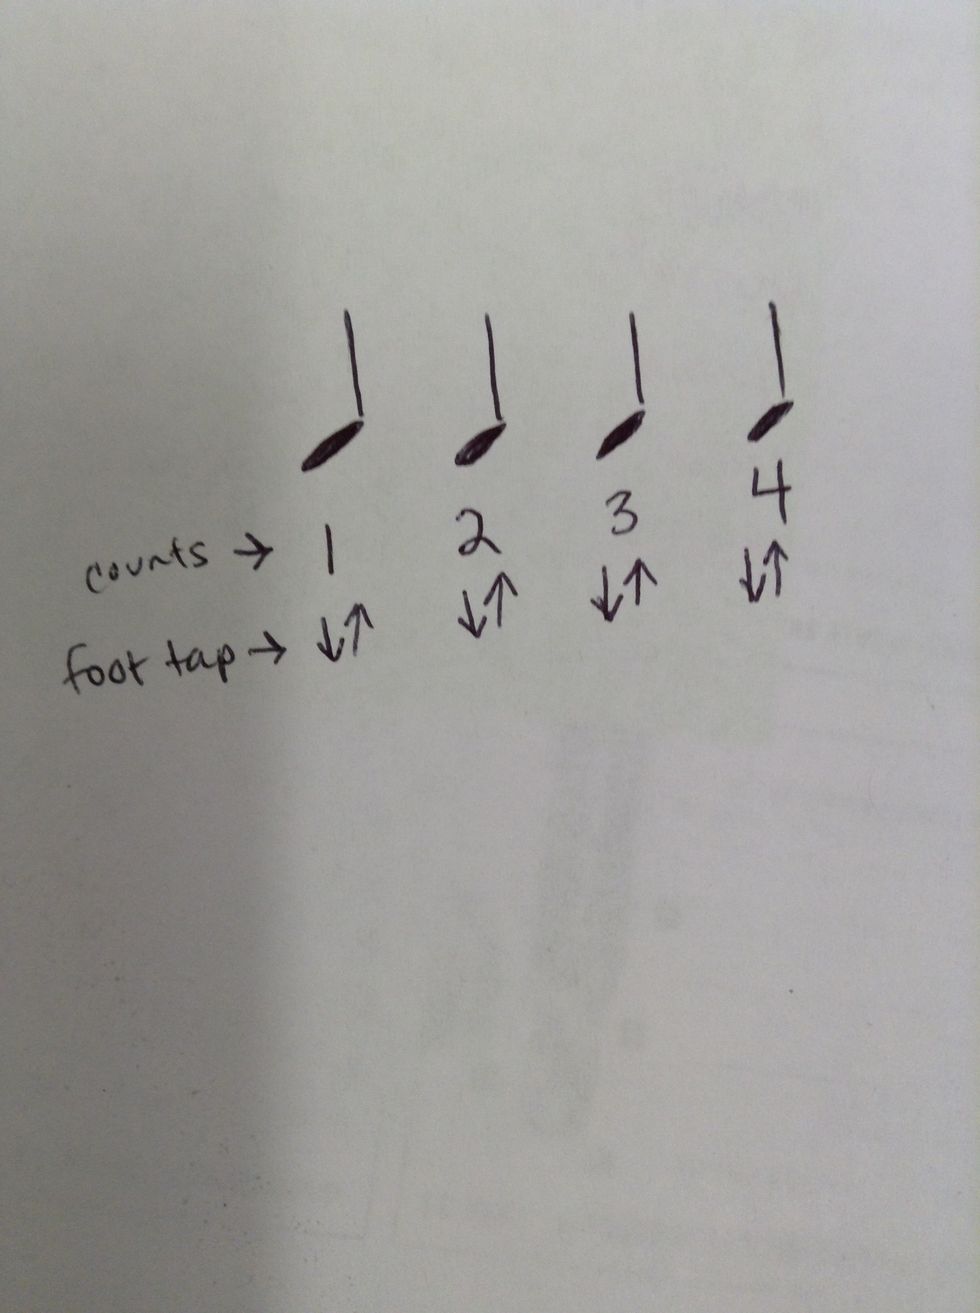 counts → 1 2 3 4
foot tap → ↓↑ ↓↑ ↓↑ ↓↑